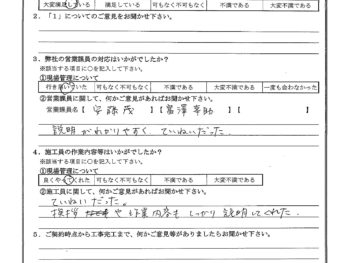 大変満足している 満足している 可も不可もなく 不満である 大変不満である
2．「1」についてのご意見をお聞かせ下さい。
3．弊社の営業職員の対応はいかがでしたか？
※該当する項目に○を記入して下さい。
①現場管理について
行き届いていた 可もなく不可もなく 不満である 大変不満である 一度も会わなかった
②営業職員に関して、何かご意見があればお聞かせ下さい。
営業職員名【 安藤 茂 】【富澤 幸助 】【 】
説明がわかりやすく、ていねいだった。
4．施工員の作業内容等はいかがでしたか？
※該当する項目に○を記入して下さい。
①現場管理について
良くやってくれた 可もなく不可もなく 不満である 大変不満である
②施工員に関して、何かご意見があればお聞かせ下さい。
ていねいだった。
挨拶や作業内容もしっかり説明してくれた。
5．ご契約時点から工事完工まで、何かご意見等がありましたらお聞かせ下さい。